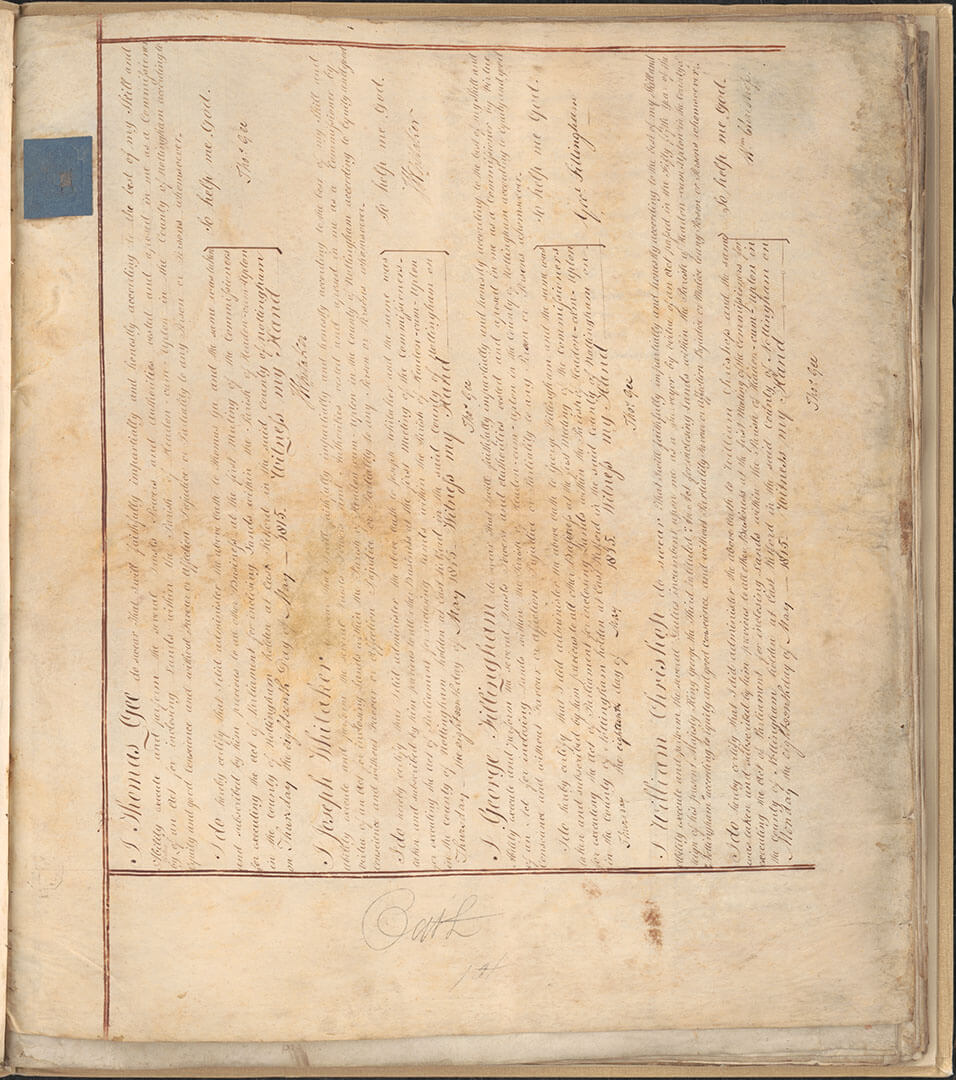 I Thomas Gee do swear that I will faithfully impartially and honestly according to the best of my Skill and
Ability execute and perform the several trusts Powers and authorities vested and reposed in me as a Commissioner
by of an Act for inclosing Lands within the Parish of Headon-cum-Upton in the County of Nottingham according to
Equity and good Conscience and without Favour or Affection Prejudice or Partiality to any Person or Persons whomsoever.
So help me God.
Thos. Gee
I do hereby certify that I did administer the above Oath to Thomas Gee and the same was taken
and subscribed by him previous to all other Business at the first meeting of the Commissioners
for executing the Act of Parliament for inclosing Lands within the Parish of Headon-cum-Upton
in the County of Nottingham holden at East Retford in the said County of Nottingham
on Thursday the eighteenth Day of May 1815. Witness my Hand
I Joseph Whitaker do swear that I will faithfully impartially and honestly according to the best of my Skill and
Ability execute and perform the several trusts Powers and authorities vested and reposed in me as a Commissioner by
virtue of an Act for inclosing Lands within the Parish of Headon-cum-Upton in the County of Nottingham according to Equity and good
conscience and without Favour or Affection Prejudice or Partiality to any Person or Persons whomsoever.
So help me God.
Whitaker
I do hereby certify that I did administer the above Oath to Joseph Whitaker and the same was
taken and subscribed by him previous to all other Business at the first Meeting of the Commissioners
for executing the Act of Parliament for inclosing Lands within the Parish of Headon-cum-Upton
in the County of Nottingham holden at East Retford in the said County of Nottingham on
Thursday the eighteenth day of May 1815 Witness my Hand
Thos. Gee
I George Fillingham do swear that I will faithfully impartially and honestly according to the best of my Skill and
Ability execute and perform the several Trusts Powers and authorities vested and reposed in me as a Commissioner by Virtue
of an Act for inclosing Lands within the Parish of Headon-cum-Upton in the County of Nottingham according to Equity and good
Conscience and without Favour or Affection Prejudice or Partiality to any Person or Persons whomsoever.
So help me God.
Geo. Fillingham
I do hereby certify that I did administer the above Oath to George Fillingham and the same was
taken and subscribed by him previous to all other Business at the first Meeting of the Commissioners
for executing the Act of Parliament for inclosing Lands within the Parish of Headon-cum-Upton
in the County of Nottingham holden at East Retford in the said County of Nottingham on
the eighteenth day of May 1815 Witness my Hand
Thos. Gee
I William Chrishop do swear That I will faithfully impartially and honestly according to the best of my Skill and
Ability execute and perform the several Duties incumbent upon me as a Surveyor by virtue of an Act passed in the Fifty fifth Year of the
reign of his present Majesty King George the Third intituled an Act for inclosing Lands within the Parish of Headon-cum-Upton in the County of
Nottingham according to Equity and good conscience and without Partiality favour affection Prejudice or Malice to any Person or Persons whomsoever.
So help me God.
I do hereby certify that I did administer the above Oath to William Chrishop and the same
was taken and subscribed by him previous to all other Business at the first Meeting of the Commissioners for
executing the Act of Parliament for inclosing Lands within the Parish of Headon-cum-Upton in
the County of Nottingham holden at East Retford in the said County of Nottingham on
the eighteenth day of May 1815 Witness my Hand
Thos. Gee
Oath
1st